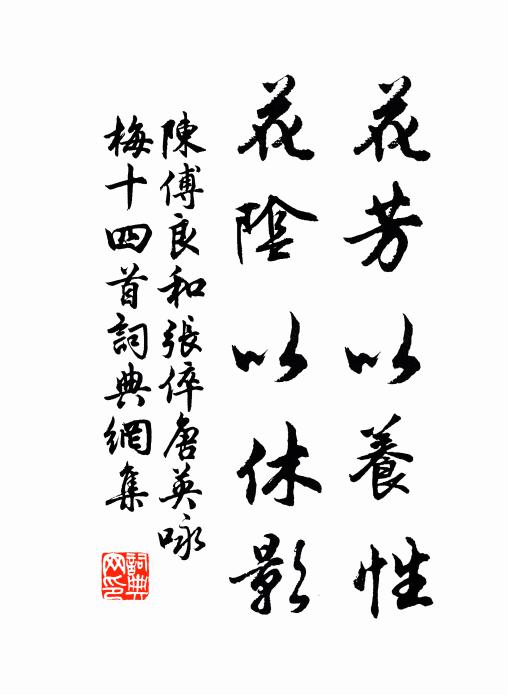 花芳以養性
花陰以休影
陳傅良和張倅唐英咏
梅十四首詞典網集
詞典
网印